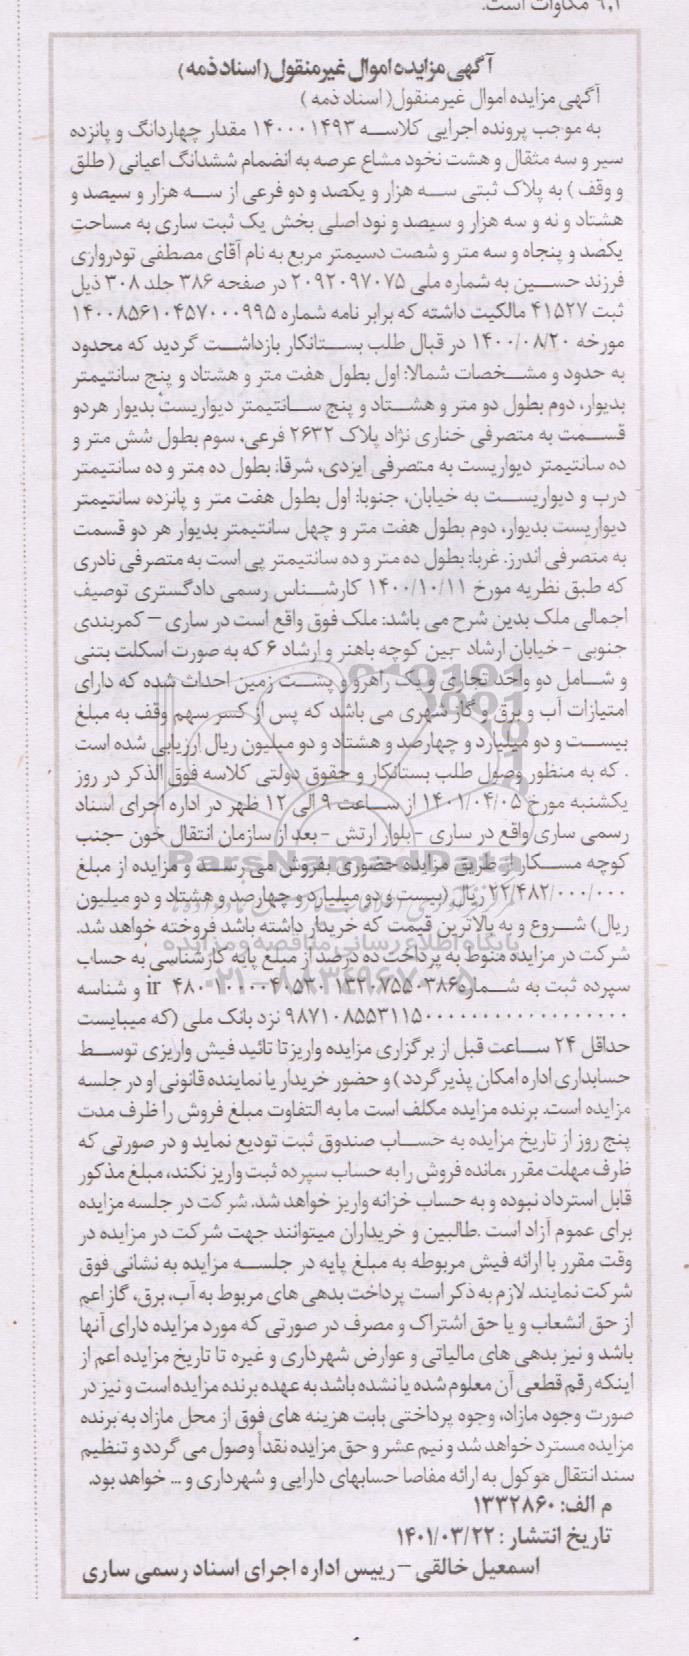 ۹,۲ مکاوات است.
آگهی مزایده اموال غیرمنقول(اسناد ذمه)
آگهی مزایده اموال غیرمنقول(اسناد ذمه )
به موجب پرونده اجرایی کلاسه ۱۴۰۰۰۱۴۹۳ مقدار چهاردانگ و پانزده
سیر و سه مثقال و هشت نخود مشاع عرصه به انضمام ششدانگ اعیانی ( طلق
و وقف ) به پلاک ثبتی سه هزار و یکصد و دو فرعی از سه هزار و سیصد و
هشتاد و نه و سه هزار و سیصد و نود اصلی بخش یک ثبت ساری به مساحت
یکصد و پنجاه و سه متر و شصت دسیمتر مربع به نام آقای مصطفی تودرواری
فرزند حسین به شماره ملی ۲۰۹۲۰۹۷۰۷۵ در صفحه ۳۸۶ جلد ۳۰۸ ذیل
ثبت ۴۱۵۲۷ مالکیت داشته که برابر نامه شماره ۱۴۰۰۸۵۶۱۰۴۵۷۰۰۰۹۹۵
مورخه ۱۴۰۰/۰۸/۲۰ در قبال طلب بستانکار بازداشت گردید که محدود
به حدود و مشخصات شمالا: اول بطول هفت متر و هشتاد و پنج سانتیمتر
بدیوار، دوم بطول دو متر و هشتاد و پنج سانتیمتر دیواریست بدیوار هردو
قسمت به متصرفی خناری نژاد پلاک ۲۶۳۲ فرعی، سوم بطول شش متر و
ده سانتیمتر دیواریست به متصرفی ایزدی، شرقا: بطول ده متر و ده سانتیمتر
درب و دیواریست به خیابان، جنوبا: اول بطول هفت متر و پانزده سانتیمتر
دیواریست بدیوار، دوم بطول هفت متر و چهل سانتیمتر بدیوار هر دو قسمت
به متصرفی اندرز. غربا: بطول ده متر و ده سانتیمتر پی است به متصرفی نادری
که طبق نظریه مورخ ۱۴۰۰/۱۰/۱۱ کارشناس رسمی دادگستری توصیف
اجمالی ملک بدین شرح می باشد: ملک فوق واقع است در ساری – کمربندی
جنوبی - خیابان ارشاد -بین کوچه باهنر و ارشاد ۶ که به صورت اسکلت بتنی
و شامل دو واحد تجاری و یک راهرو و پشت زمین احداث شده که دارای
امتیازات آب و برق و گاز شهری می باشد که پس از کسر سهم وقف به مبلغ
بیست و دو میلیارد و چهارصد و هشتاد و دو میلیون ریال ارزیابی شده است
. که به منظور وصول طلب بستانکار و حقوق دولتی کلاسه فوق الذکر در روز
یکشنبه مورخ ۱۴۰۱/۰۴/۰۵ از ساعت ۹ الی ۱۲ ظهر در اداره اجرای اسناد
رسمی ساری واقع در ساری - بلوار ارتش - بعد از سازمان انتقال خون -جنب
کوچه مسکار از طریق مزایده حضوری بفروش می رسد و مزایده از مبلغ
۲۲/۴۸۲/۰۰۰/۰۰۰ ریال (بیست و دو میلیارد و چهارصد و هشتاد و دو میلیون
ریال) شروع و به بالاترین قیمت که خریدار داشته باشد فروخته خواهد شد.
شرکت در مزایده منوط به پرداخت ده درصد از مبلغ پایه کارشناسی به حساب
سپرده ثبت به شماره ir ۴۸۰۱۰۰۰۰۴۰۵۳۰۱۳۲۰۷۵۵۰۳۸۶ و شناسه
۹۸۷۱۰۸۵۵۳۱۱۵۰۰۰۰۰۰۰۰۰۰۰۰۰۰۰۰۰۰ نزد بانک ملی (که میبایست
حداقل ۲۴ ساعت قبل از برگزاری مزایده واریز تا تائید فیش واریزی توسط
حسابداری اداره امکان پذیر گردد) و حضور خریدار یا نماینده قانونی او در جلسه
مزایده است. برنده مزایده مکلف است ما به التفاوت مبلغ فروش را ظرف مدت
پنج روز از تاریخ مزایده به حساب صندوق ثبت تودیع نماید و در صورتی که
ظرف مهلت مقرر ،مانده فروش را به حساب سپرده ثبت واریز نکند، مبلغ مذکور
قابل استرداد نبوده و به حساب خزانه واریز خواهد شد. شرکت در جلسه مزایده
برای عموم آزاد است .طالبین و خریداران میتوانند جهت شرکت در مزایده در
وقت مقرر با ارائه فیش مربوطه به مبلغ پایه در جلسه مزایده به نشانی فوق
شرکت نمایند. لازم به ذکر است پرداخت بدهی های مربوط به آب، برق، گاز اعم
از حق انشعاب و یا حق اشتراک و مصرف در صورتی که مورد مزایده دارای آنها
باشد و نیز بدهی های مالیاتی و عوارض شهرداری و غیره تا تاریخ مزایده اعم از
اینکه رقم قطعی آن معلوم شده یا نشده باشد به عهده برنده مزایده است و نیز در
صورت وجود مازاد، وجوه پرداختی بابت هزینه های فوق از محل مازاد به برنده
مزایده مسترد خواهد شد و نیم عشر و حق مزایده نقداً وصول می گردد و تنظیم
سند انتقال موکول به ارائه مفاصا حسابهای دارایی و شهرداری و ... خواهد بود.
م الف: ۱۳۳۲۸۶۰
تاریخ انتشار : ۱۴۰۱/۰۳/۲۲
اسمعیل خالقی – رییس اداره اجرای اسناد رسمی ساری
ParsNamadData
پایگاه اطلاع رسانی مناقصه و مزایده
۰۲۱-۸۸۳۴۹۶۷۰-۵